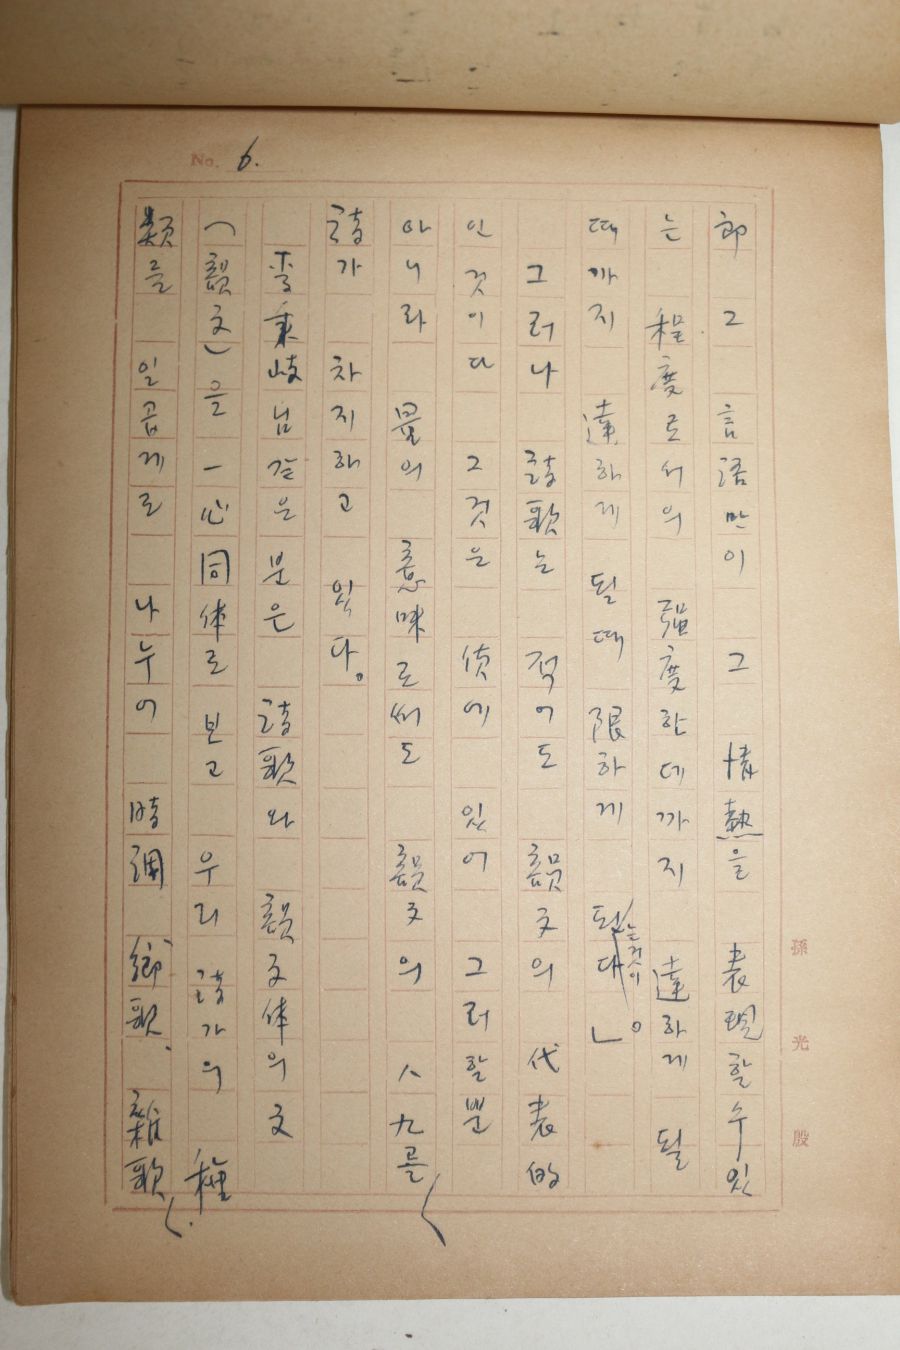 No. 6.
郎 그 言語만이 그 情熱을 表現할수있
는 程度로서의 强度한데까지 達하게 될
때까지 達하게 될때 限하게 된다는것이」。
그러나 詩歌는 적어도 韻文의 代表的
인것이다 그것은 侦에 있어 그러할뿐
아니라 量의 意味로써도 韻文의 八九를
詩가 차지하고 있다。
李秉岐님같은 분은 詩歌와 韻文体의 文
(韻文)을 一心同体로 보고 우리 詩가의 種
類를 일곱게로 나누어 時調 鄕歌、雜歌、
孫光殷